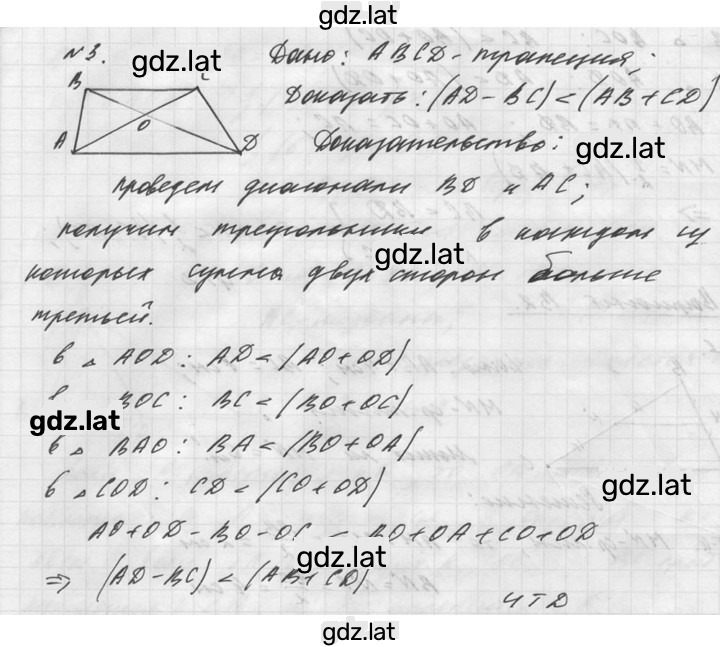 gdz.lat
№3.
Дано: ABCD - трапеция.
gdz.lat
B C
Доказать: (AD - BC) < (AB + CD)
O
A D
Доказательство:
gdz.lat
проведем диагонали BD и AC;
получим треугольники в каждом из
gdz.lat
которых сумма двух сторон больше
третьей.
в △ AOD: AD < (AO + OD)
в BOC: BC < (BO + OC)
gdz.lat
в △ BAO: BA < (BO + OA)
в △ COD: CD < (CO + OD)
gdz.lat
AO + OD - BO - OC < BO + OA + CO + OD
gdz.lat
⇒ (AD - BC) < (AB + CD)
ЧТД
gdz.lat